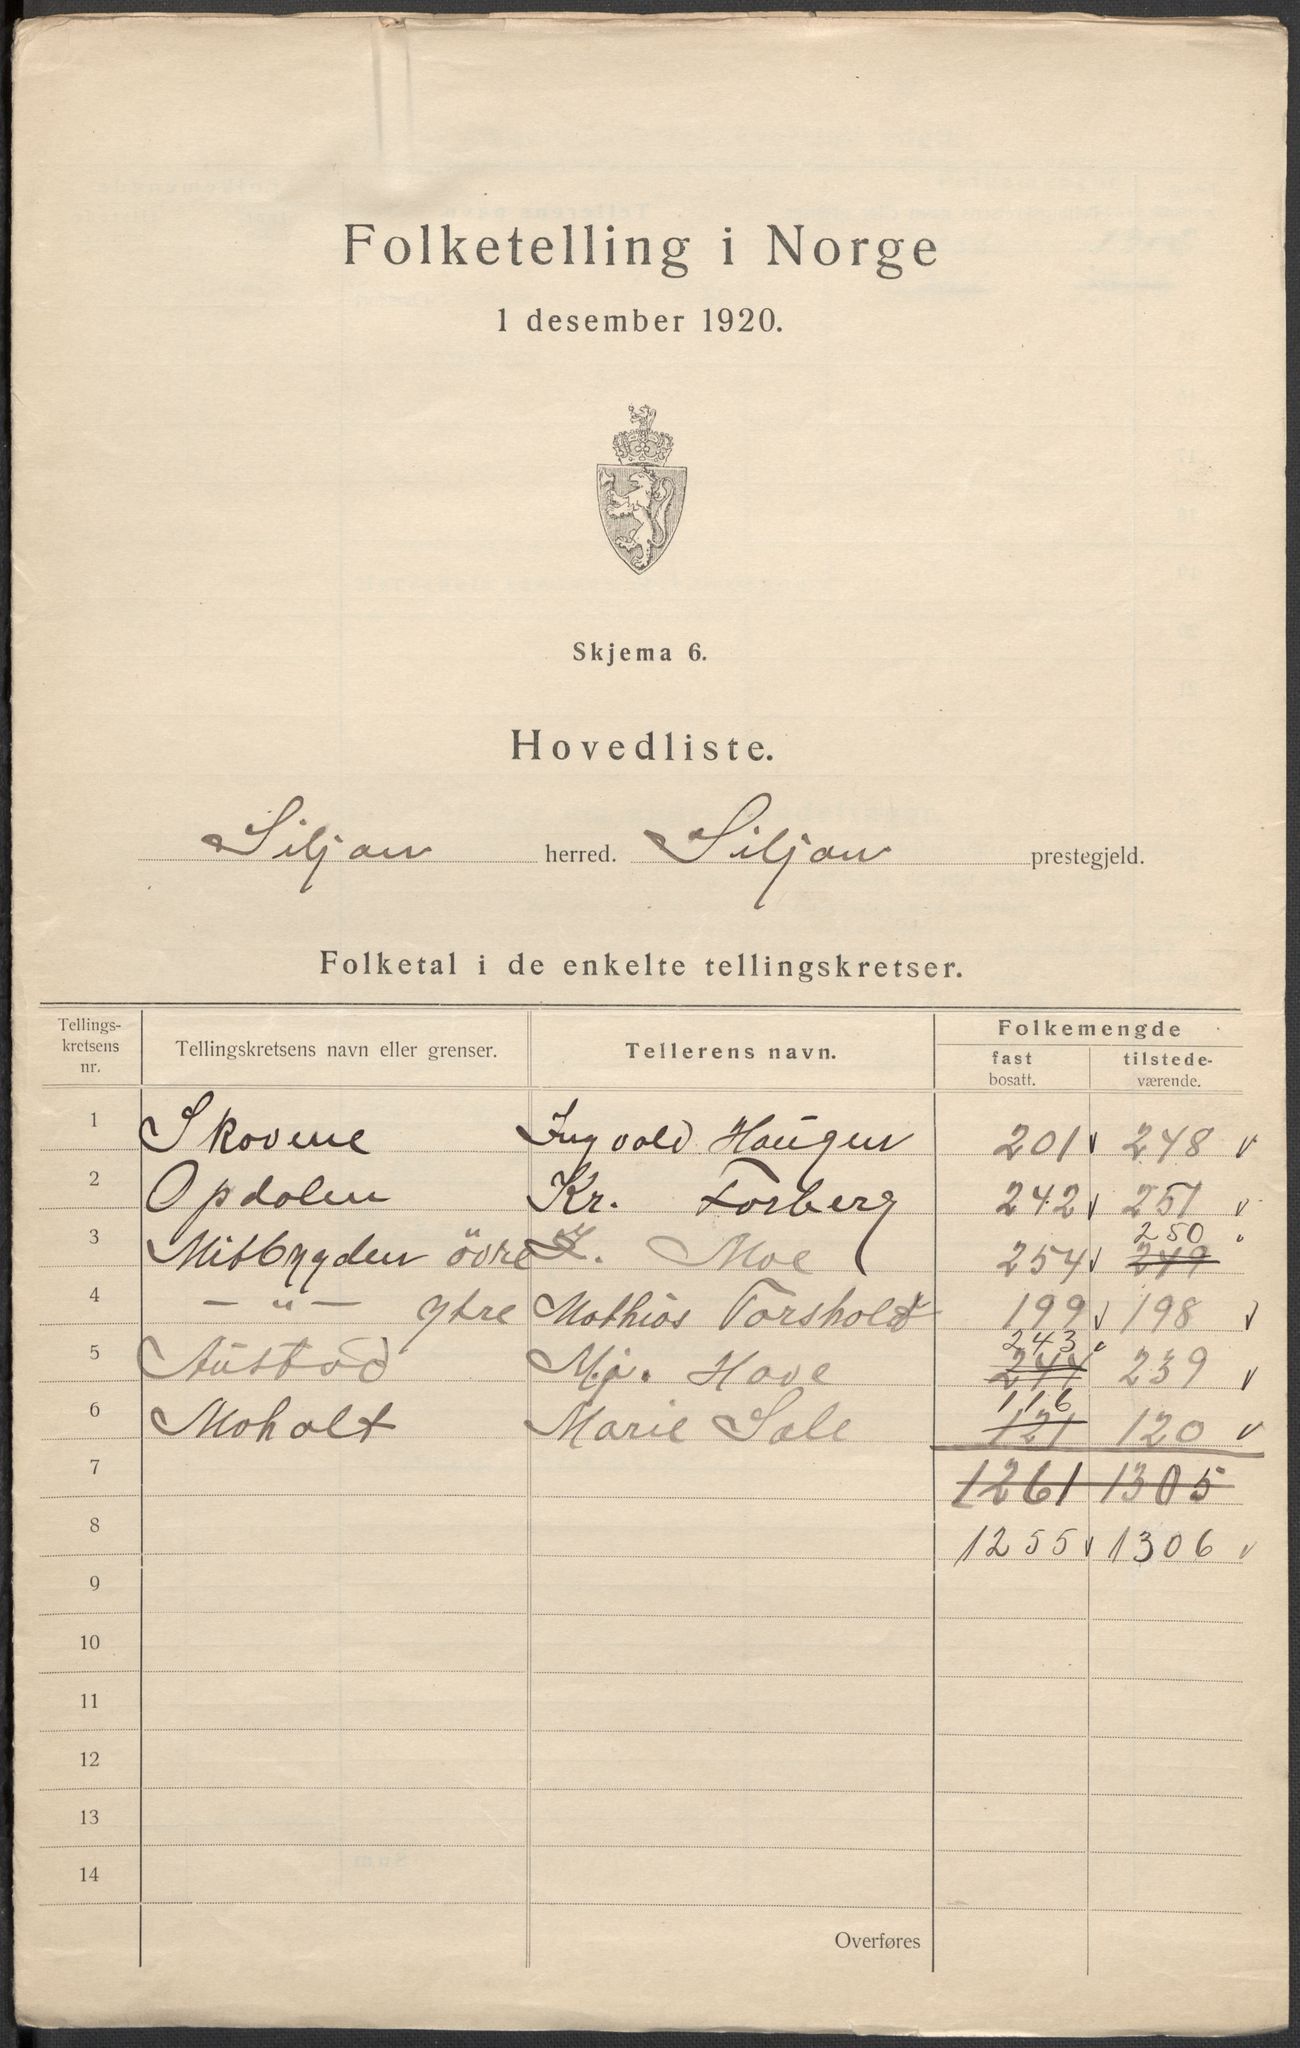 Folketelling i Norge
1 desember 1920.
Skjema 6.
Hovedliste.
Siljan herred. Siljan prestegjeld.
Folketal i de enkelte tellingskretser.
Tellings-
kretsens
nr.
Tellingskretsens navn eller grenser.
Tellerens navn.
Folkemengde
fast
bosatt.
tilstede-
værende.
1 Skovene Ingvald Haugen 201 248
2 Opdalen Kr. Forberg 242 251
250
3 Mitbygden övre Moe 254 249
4 — " — ytre Mathias Torsholt 199 198
243
5 Austad Mj. Have 244 239
116
6 Moholt Marie Sale 121 120
7 1261 1305
8 1255 1306
9
10
11
12
13
14
Overføres